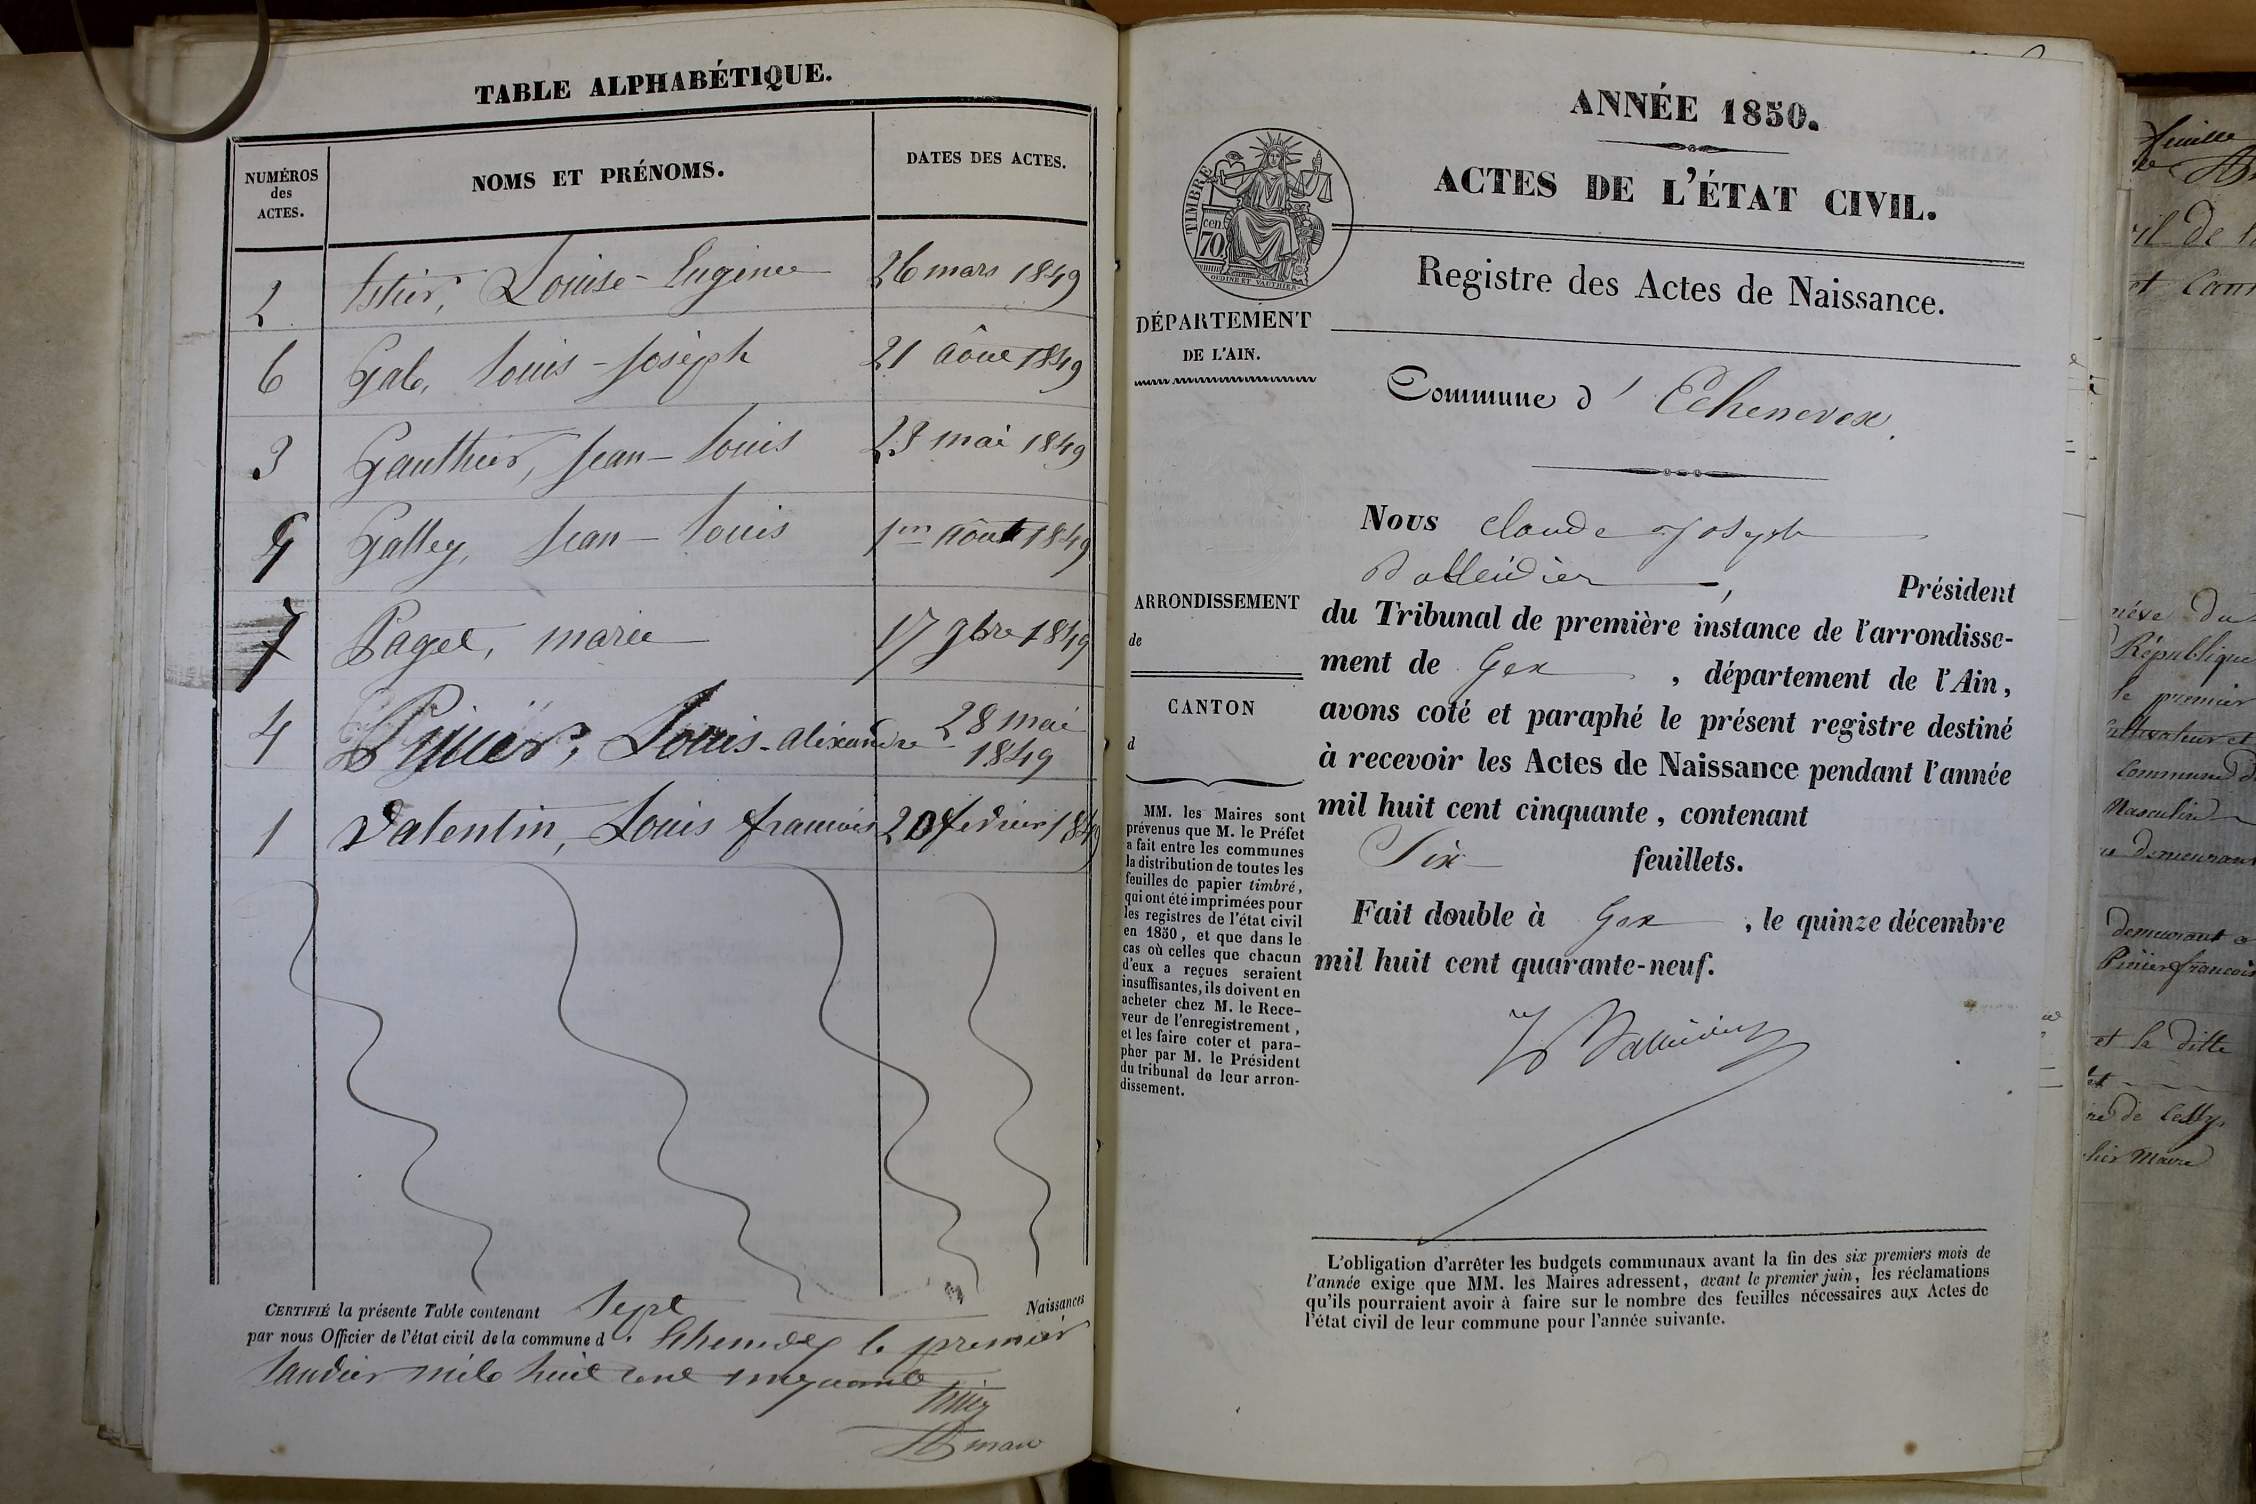 TABLE ALPHABÉTIQUE.
NUMÉROS
des
ACTES.
NOMS ET PRÉNOMS.
DATES DES ACTES.
2 Louise-Eugénee 26 mars 1849
6 Gab, louis-joséph 21 Aôut 1849
3 Gauthier, jean-louis 23 mai 1849
5 Galley, jean-louis 1er Août 1849
7 Paget, mariee 17 9bre 1849
4 Pinier, Louis-aléxandre 28 mai
1849
1 Valentin, Louis francois 20 fevrier 1849
CERTIFIÉ la présente Table contenant Sept Naissances
par nous Officier de l'état civil de la commune d' le premier
Janvier mile huit cent cinquante
ANNÉE 1850.
ACTES DE L'ÉTAT CIVIL.
Registre des Actes de Naissance.
TIMBRE
cen.
70
OUDINE ET VAUTHIER.
DÉPARTEMENT
DE L'AIN.
Commune d'Echenevex.
ARRONDISSEMENT
de
CANTON
d
MM. les Maires sont
prévenus que M. le Préfet
a fait entre les communes
la distribution de toutes les
feuilles de papier timbré,
qui ont été imprimées pour
les registres de l'état civil
en 1850, et que dans le
cas où celles que chacun
d'eux a reçues seraient
insuffisantes, ils doivent en
acheter chez M. le Rece-
veur de l'enregistrement,
et les faire coter et para-
pher par M. le Président
du tribunal de leur arron-
dissement.
Nous Claude Joseph
Président
du Tribunal de première instance de l'arrondisse-
ment de Gex, département de l'Ain,
avons coté et paraphé le présent registre destiné
à recevoir les Actes de Naissance pendant l'année
mil huit cent cinquante, contenant
Six feuillets.
Fait double à Gex, le quinze décembre
mil huit cent quarante-neuf.
L'obligation d'arrêter les budgets communaux avant la fin des six premiers mois de
l'année exige que MM. les Maires adressent, avant le premier juin, les réclamations
qu'ils pourraient avoir à faire sur le nombre des feuilles nécessaires aux Actes de
l'état civil de leur commune pour l'année suivante.
feuille
République
le premier
Cultivateur et
Commune d
Masculin
demeurant
demeurant a
Pinier francois
et la ditte